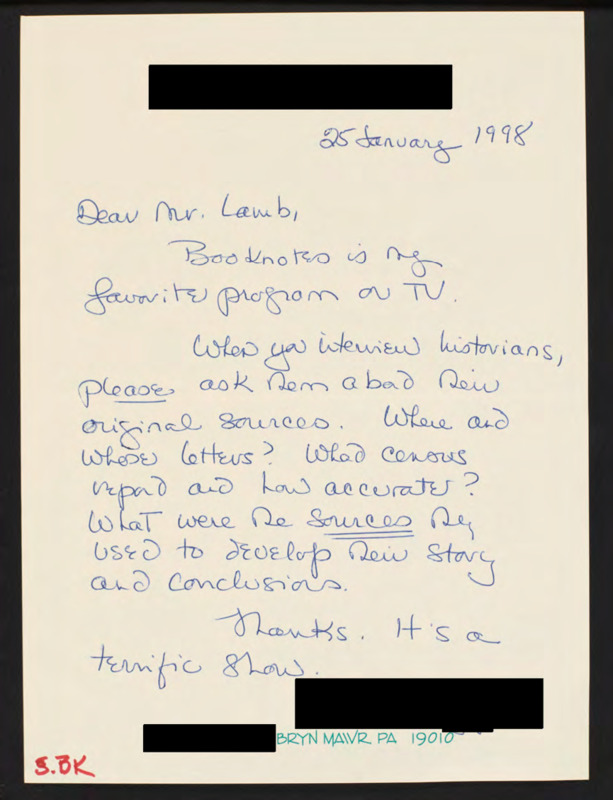 25 January 1998
Dear Mr. Lamb,
Booknotes is my
favorite program on TV.
When you interview historians,
please ask them about their
original sources. Where and
whose letters? What census
report and how accurate?
What were the sources they
used to develop their story
and conclusions.
Thanks. It's a
terrific show.
BRYN MAWR PA 19010
S.BK